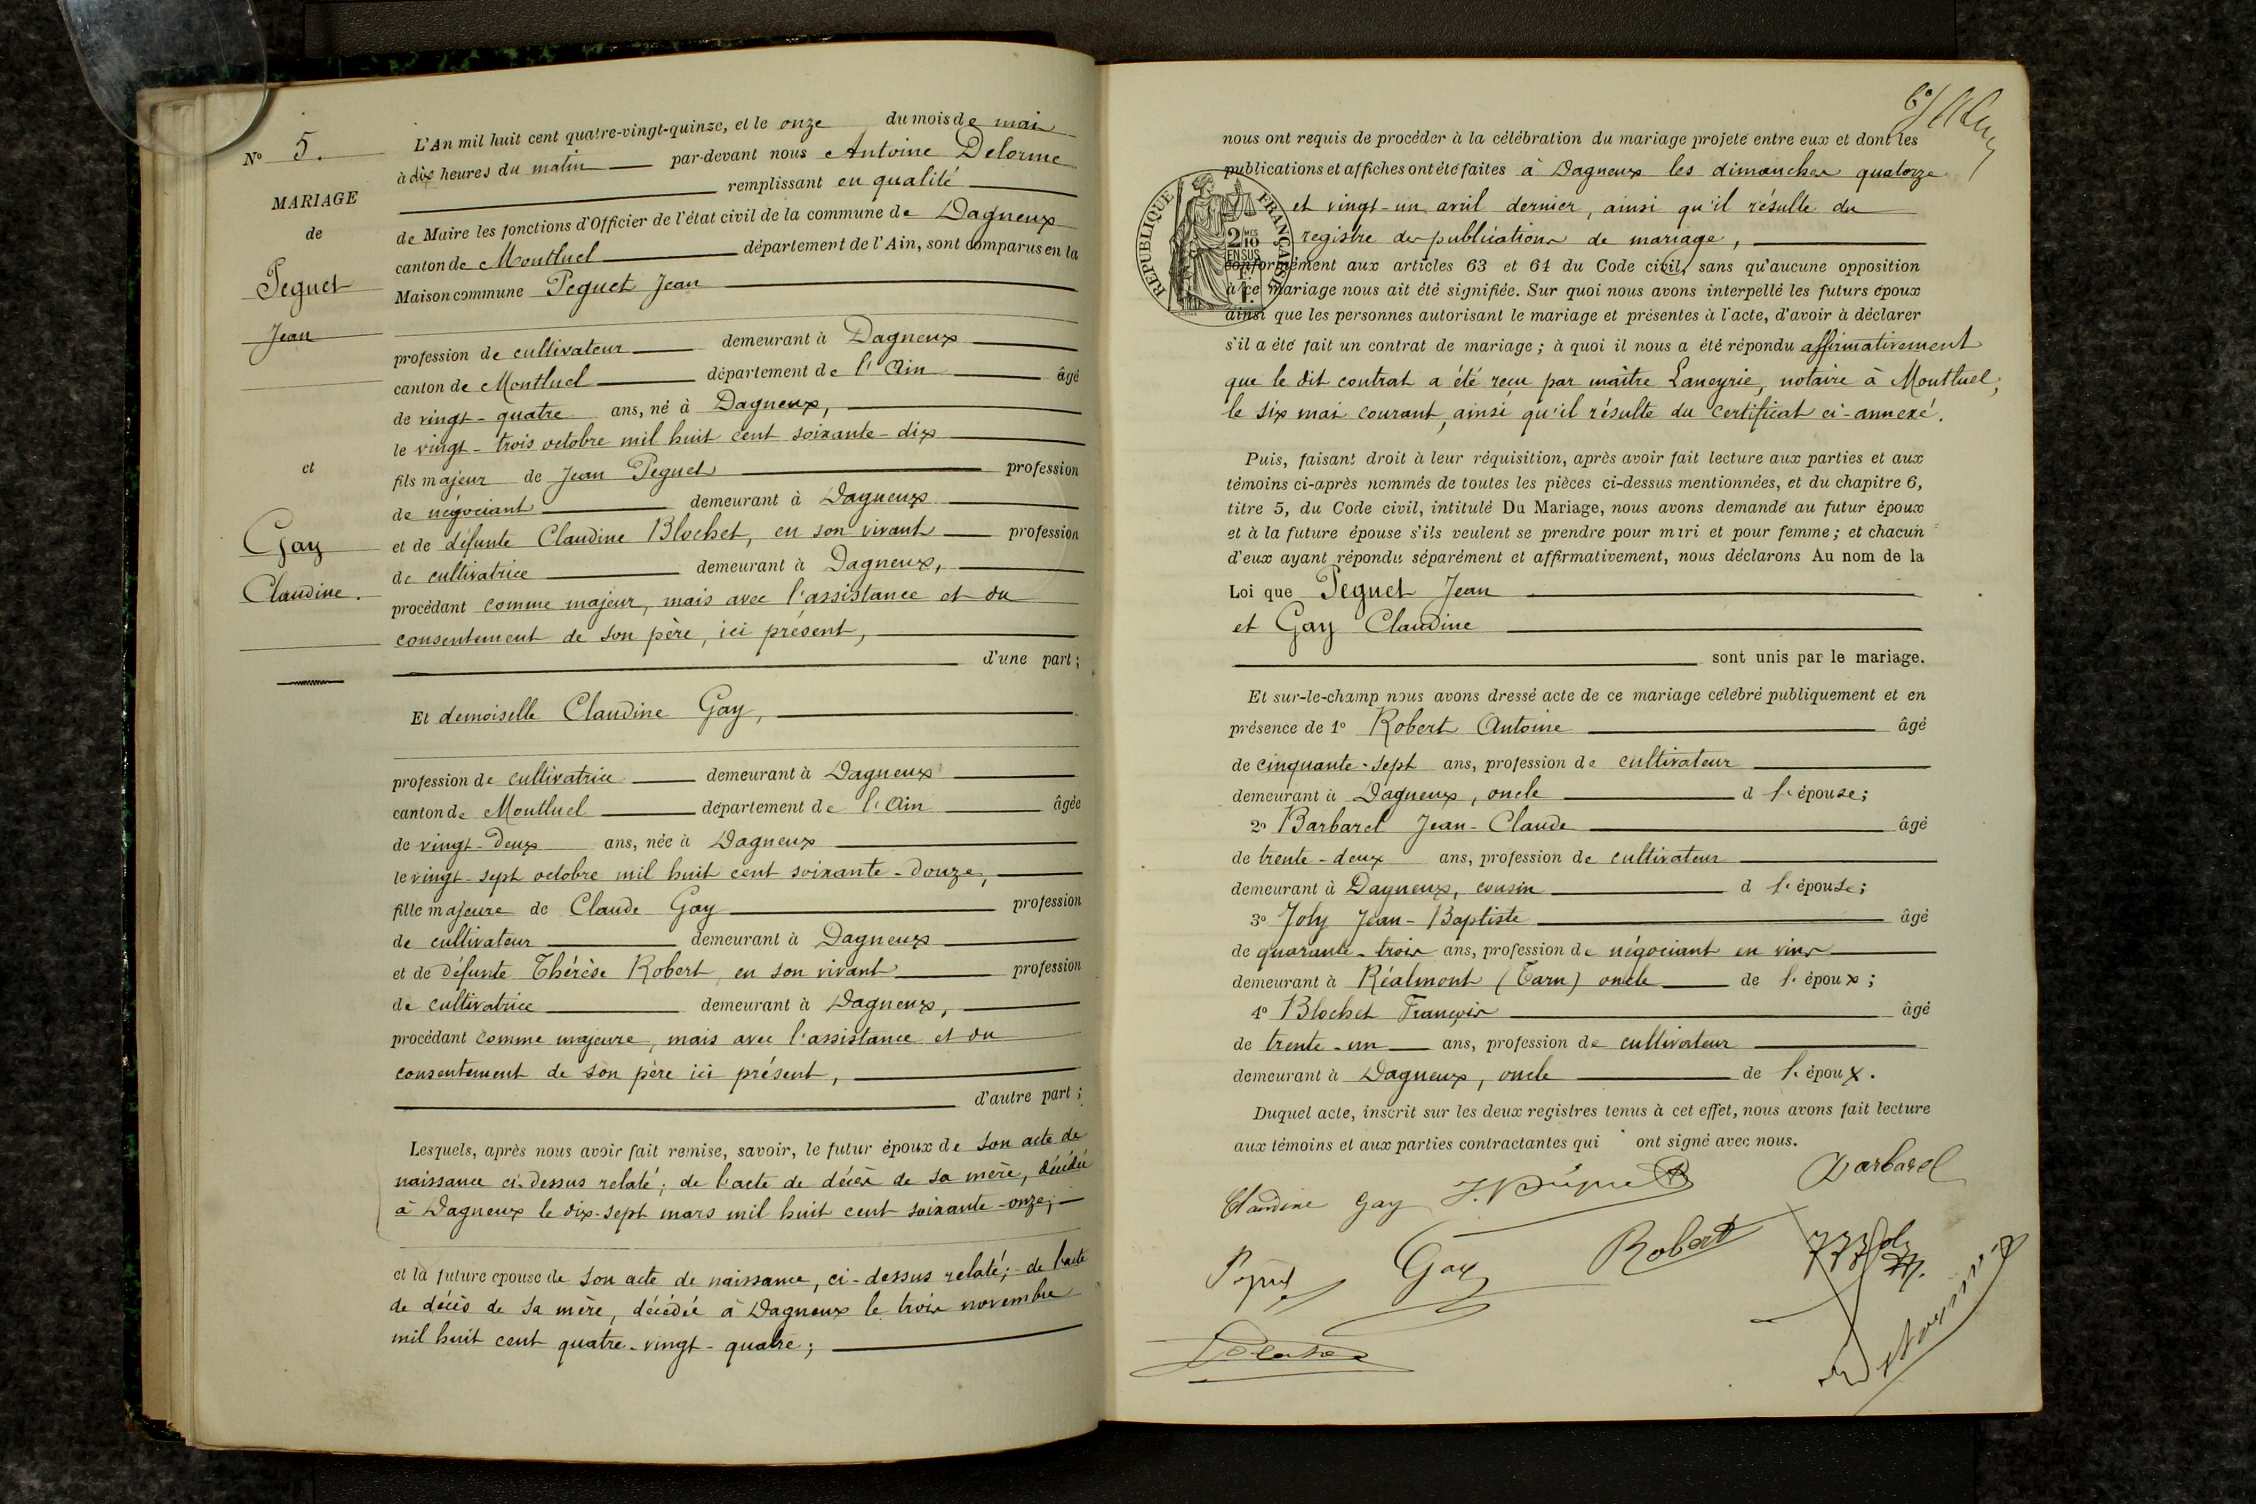 N° 5.
MARIAGE
de
Peguet
Jean
et
Gay
Claudine.
L'An mil huit cent quatre-vingt-quinze, et le onze du mois de mai
à dix heures du matin par-devant nous Antoine Delorme
remplissant en qualité
de Maire les fonctions d'Officier de l'état civil de la commune de Dagneux
canton de Montluel département de l'Ain, sont comparus en la
Maison commune Peguet Jean
profession de cultivateur demeurant à Dagneux
canton de Montluel département de l'Ain âgé
de vingt-quatre ans, né à Dagneux,
le vingt-trois octobre mil huit cent soixante-dix
fils majeur de Jean Peguet profession
de négociant demeurant à Dagneux
et de défunte Claudine Blochet, en son vivant profession
de cultivatrice demeurant à Dagneux,
procédant comme majeur, mais avec l'assistance et du
consentement de son père, ici présent,
d'une part;
Et demoiselle Claudine Gay,
profession de cultivatrice demeurant à Dagneux
canton de Montluel département de l'Ain âgée
de vingt-deux ans, née à Dagneux
le vingt-sept octobre mil huit cent soixante-douze,
fille majeure de Claude Gay profession
de cultivateur demeurant à Dagneux
et de défunte Thérèse Robert, en son vivant profession
de cultivatrice demeurant à Dagneux,
procédant comme majeure, mais avec l'assistance et du
consentement de son père ici présent,
d'autre part;
Lesquels, après nous avoir fait remise, savoir, le futur époux de son acte de
naissance ci-dessus relaté; de l'acte de décès de sa mère, décédée
à Dagneux le dix-sept mars mil huit cent soixante-onze;
et la future épouse de son acte de naissance, ci-dessus relaté; de l'acte
de décès de sa mère, décédée à Dagneux le trois novembre
mil huit cent quatre-vingt-quatre;
nous ont requis de procéder à la célébration du mariage projeté entre eux et dont les
publications et affiches ont été faites à Dagneux les dimanches quatorze
et vingt-un avril dernier, ainsi qu'il résulte du
registre des publications de mariage,
RÉPUBLIQUE FRANÇAISE
2/10 EN SUS
conformément aux articles 63 et 64 du Code civil, sans qu'aucune opposition
à ce mariage nous ait été signifiée. Sur quoi nous avons interpellé les futurs époux
ainsi que les personnes autorisant le mariage et présentes à l'acte, d'avoir à déclarer
s'il a été fait un contrat de mariage; à quoi il nous a été répondu affirmativement
que le dit contrat a été reçu par maître Laneyrie, notaire à Montluel,
le six mai courant, ainsi qu'il résulte du certificat ci-annexé.
Puis, faisant droit à leur réquisition, après avoir fait lecture aux parties et aux
témoins ci-après nommés de toutes les pièces ci-dessus mentionnées, et du chapitre 6,
titre 5, du Code civil, intitulé Du Mariage, nous avons demandé au futur époux
et à la future épouse s'ils veulent se prendre pour mari et pour femme; et chacun
d'eux ayant répondu séparément et affirmativement, nous déclarons Au nom de la
Loi que Peguet Jean
et Gay Claudine
sont unis par le mariage.
Et sur-le-champ nous avons dressé acte de ce mariage célébré publiquement et en
présence de 1° Robert Antoine âgé
de cinquante-sept ans, profession de cultivateur
demeurant à Dagneux, oncle d l'épouse;
2° Barbarel Jean-Claude âgé
de trente-deux ans, profession de cultivateur
demeurant à Dagneux, cousin d l'épouse;
3° Joly Jean-Baptiste âgé
de quarante-trois ans, profession de négociant en vins
demeurant à Réalmont (Tarn) oncle de l'époux;
4° Blochet François âgé
de trente-un ans, profession de cultivateur
demeurant à Dagneux, oncle de l'époux.
Duquel acte, inscrit sur les deux registres tenus à cet effet, nous avons fait lecture
aux témoins et aux parties contractantes qui ont signé avec nous.
Claudine Gay Barbarel
Gay Robert